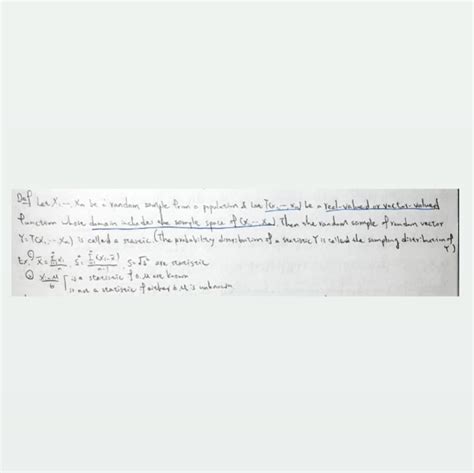 Def Let X1, ⋯, Xn be a random sample from a population & let T(x1, ⋯, xn) be a real-valued or vector-valued
function whose domain includes the sample space of (X1, ⋯, Xn). Then the random sample of random vector
Y=T(X1, ⋯, Xn) is called a statistic. (The probability distribution of a statistic Y is called the sampling distribution of Y)
Ex. ① X̄ = Σᵢ₌₁ⁿ Xi / n, S² = Σᵢ₌₁ⁿ (Xi - X̄)² / n-1, S=√S² are statistic
② X1-μ / σ [ is a statistic if σ, μ are known
is not a statistic if either σ, μ is unknown